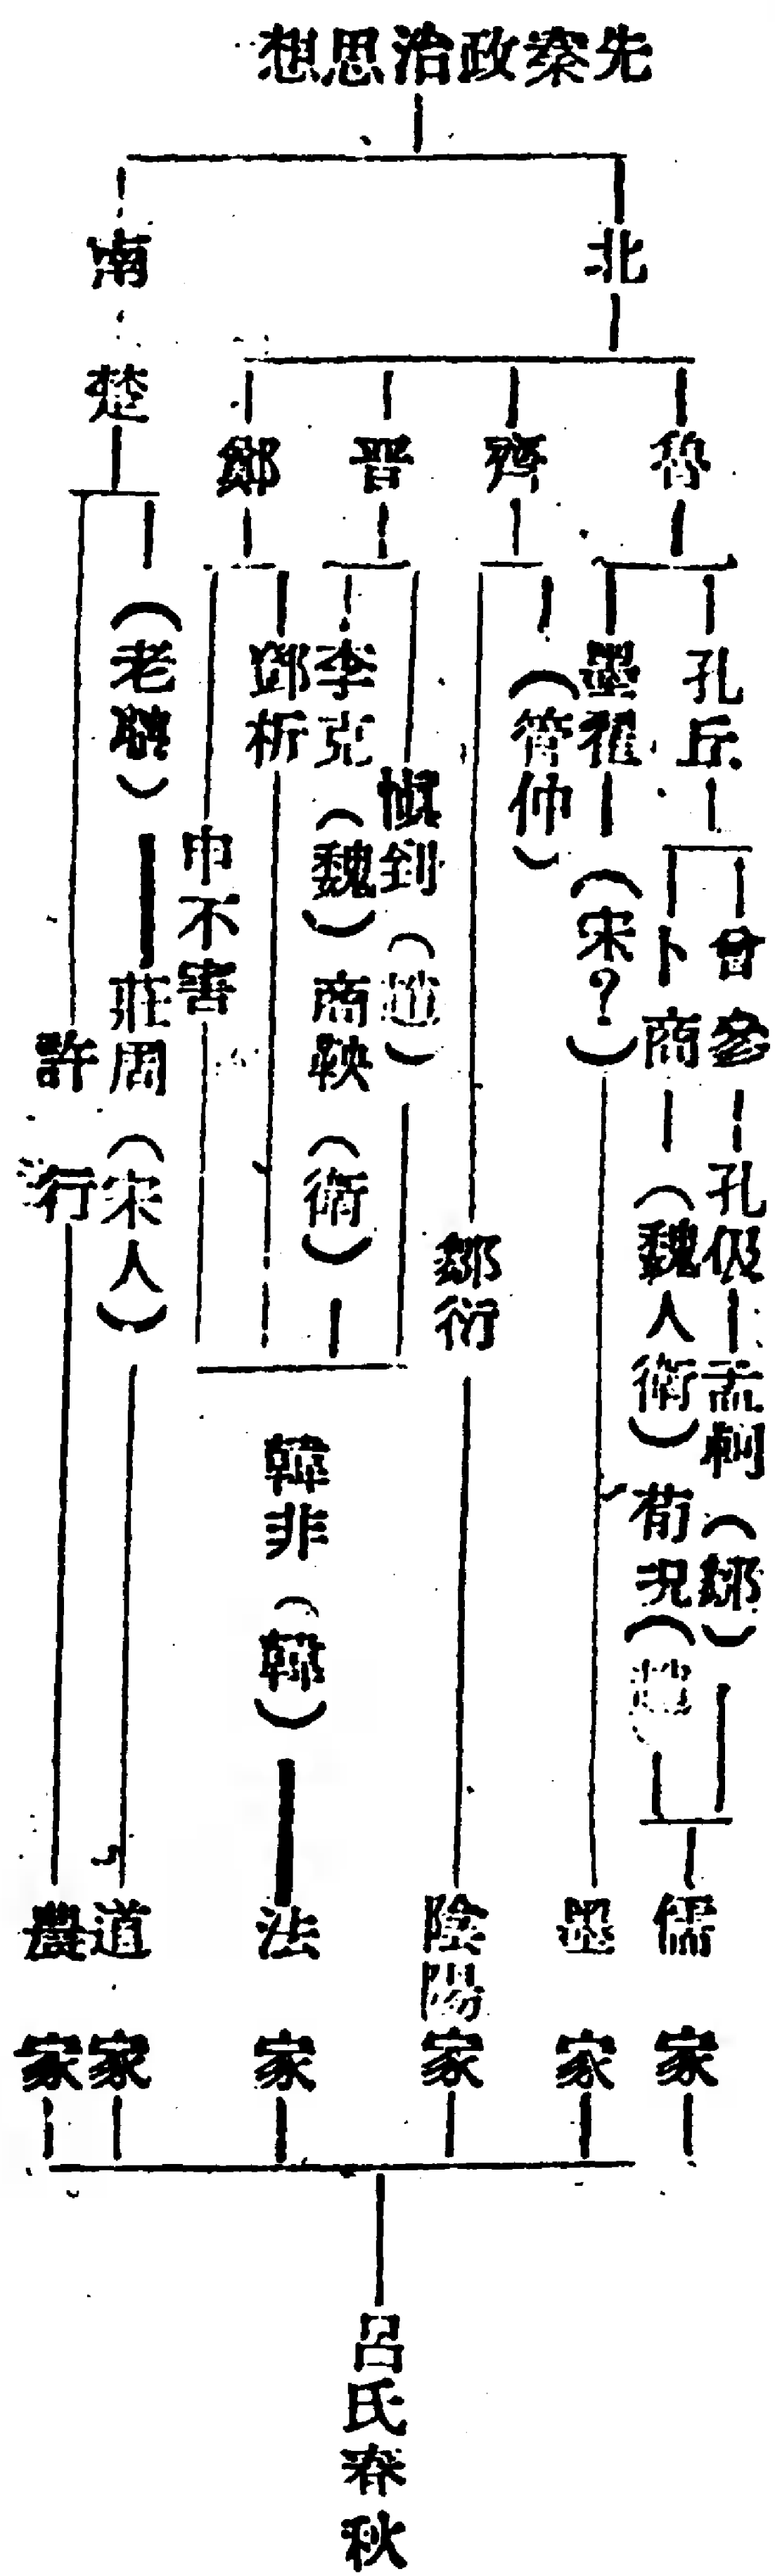 先秦政治思想
北
南
魯
齊
晋
鄭
楚
孔丘
曾參
孔伋
孟軻（鄒）
卜商
（魏人衛）
荀况（趙）
墨翟
（宋？）
（管仲）
鄒衍
慎到（趙）
李克（魏）
商鞅（衛）
鄧析
申不害
韓非（韓）
（老聃）
莊周（宋人）
許行
儒家
墨家
陰陽家
法家
道家
農家
呂氏春秋